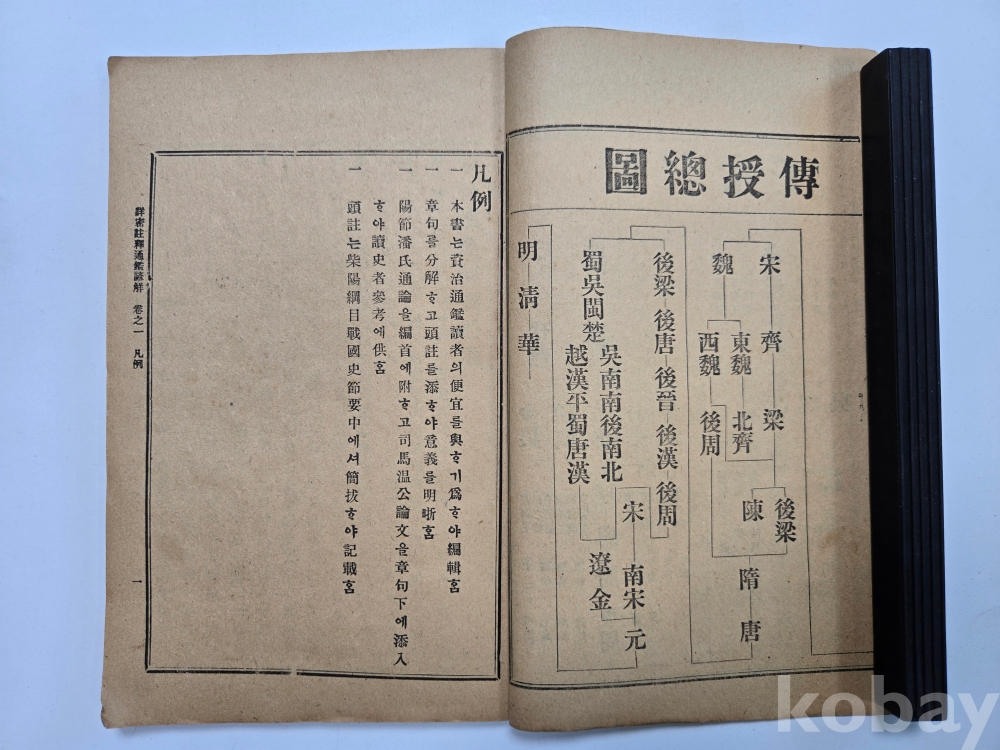 傳授總圖
宋 齊 梁 後梁
陳 隋 唐
魏 東魏 北齊
西魏 後周
後梁 後唐 後晉 後漢 後周
宋 南宋 元
吳南南後南北
蜀吳閩楚
越漢平蜀唐漢
遼 金
明 淸 華
凡例
一 本書는資治通鑑讀者의便宜를與ᄒᆞ기爲ᄒᆞ야編輯홈
一 章句를分解ᄒᆞ고頭註를添ᄒᆞ야意義를明晰홈
一 陽節潘氏通論을編首에附ᄒᆞ고司馬温公論文을章句下에添入
ᄒᆞ야讀史者參考에供홈
一 頭註는柴陽綱目戰國史節要中에셔簡拔ᄒᆞ야記載홈
詳密註釋通鑑諺解 卷之一 凡例 一
kobay